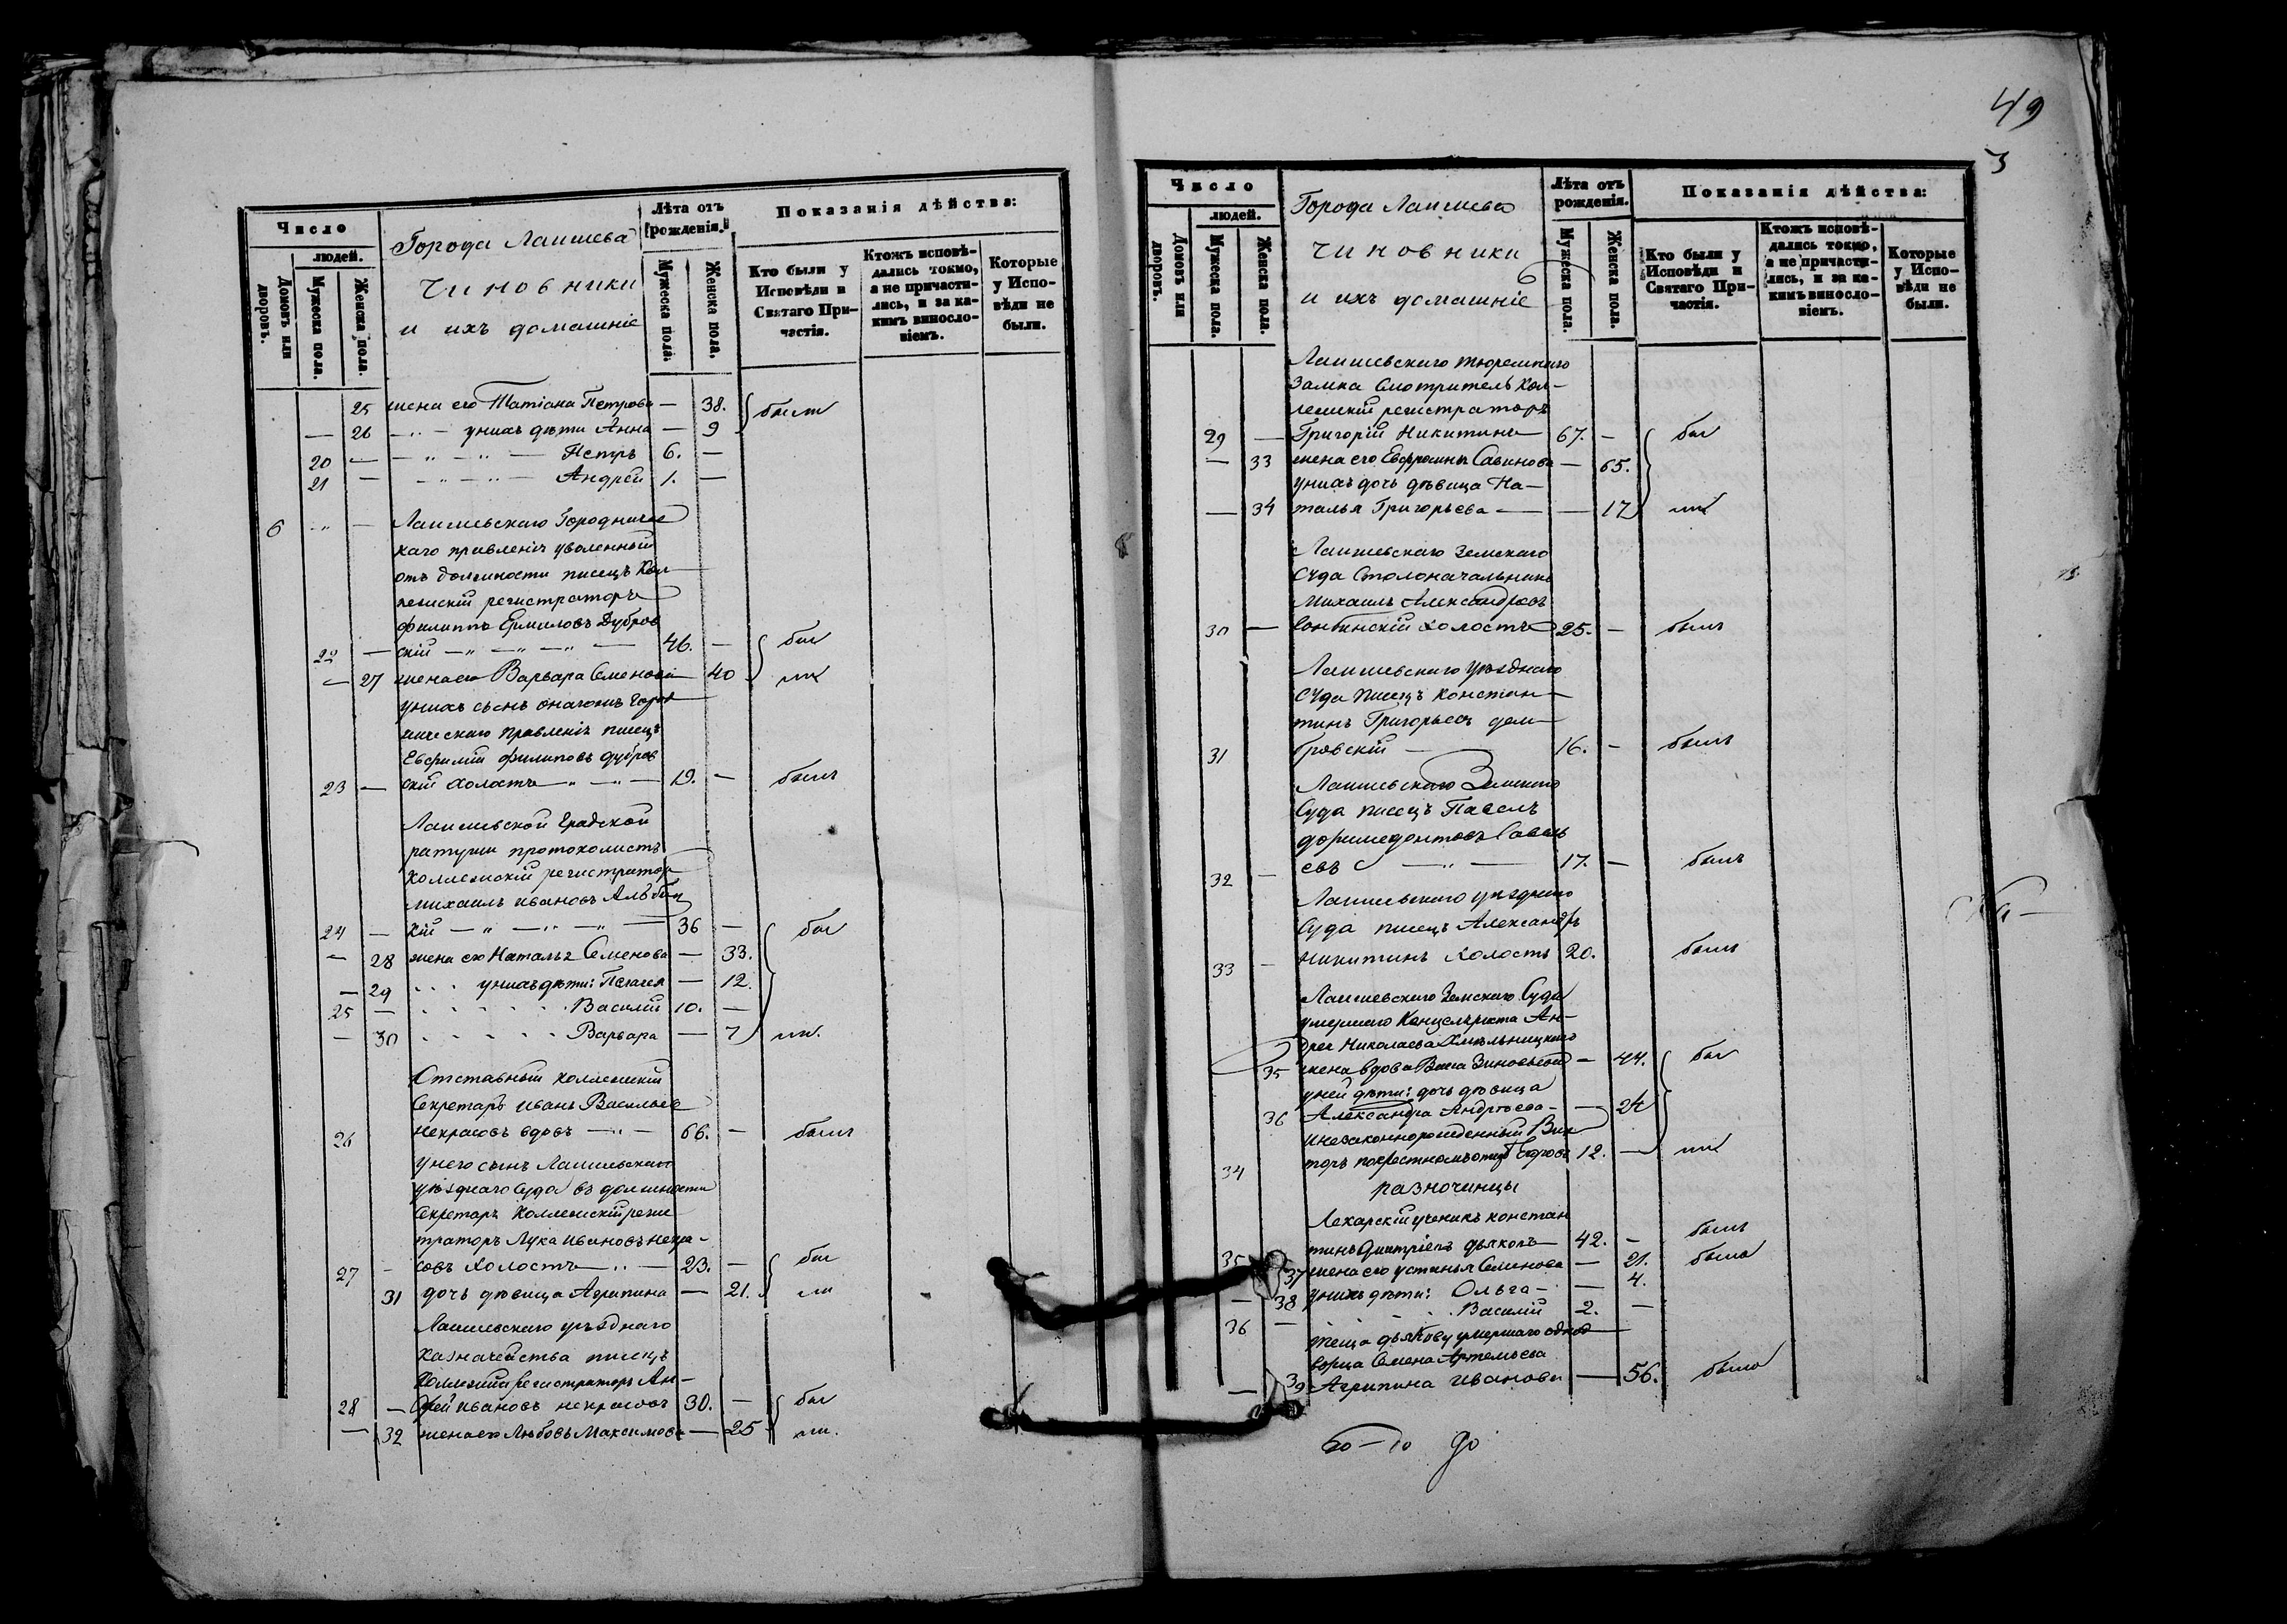 Число
людей.
Домовъ или дворовъ.
Мужеска пола.
Женска пола.
Города Лаишева
Чиновники
и ихъ домашніе
Лѣта отъ рожденія.
Мужеска пола.
Женска пола.
Показанія дѣйства:
Кто были у Исповѣди и Святаго Причастія.
Ктожъ исповѣдались токмо, а не причастились, и за какимъ винословіемъ.
Которые у Исповѣди не были.
25 жена его Татіана Петрова — 38. были
— 26 — " — у нихъ дѣти Анна — 9
20 — — " — " — Петръ 6. —
21 — — " — " — Андрей 1. —
6 " — Лаишевскаго Городничес
каго правленія уволенный
отъ должности писецъ Кол
лежскій регистраторъ
Филиппъ Ермиловъ Дубров
22 — скій — " — " — " — 46. — бы
— 27 жена его Варвара Семенова — 40 ли
у нихъ сынъ онагожъ Город
ническаго правленія писецъ
Евфимій Филиповъ Дубров
23 — скій холостъ — " — " — 19. — былъ
Лаишевской Градской
ратуши протоколистъ
Коллежскій регистраторъ
Михаилъ Ивановъ
24 — кій — " — " — " — 36 — бы
— 28 жена его Наталья Семенова — 33.
— 29 у нихъ дѣти: Пелагея — 12.
25 — Василій 10. —
— 30 Варвара — 7 ли.
Отставный коллежскій
Секретарь Иванъ Васильевъ
26 Некрасовъ вдовъ — " — 66. — былъ
у него сынъ Лаишевскаго
уѣзднаго Суда въ должности
Секретаря Коллежскій регис
траторъ Лука Ивановъ Некра-
27 — совъ холостъ — " — 23. — бы
31 дочь дѣвица Агрипина — 21. ли
Лаишевскаго уѣзднаго
Казначейства писецъ
Коллежскій регистраторъ Ан-
28 — дрей Ивановъ Некрасовъ 30. — бы
— 32 жена его Любовь Максимова — 25 ли.
49
3
Число
людей.
Домовъ или дворовъ.
Мужеска пола.
Женска пола.
Города Лаишева
Чиновники
и ихъ домашніе
Лѣта отъ рожденія.
Мужеска пола.
Женска пола.
Показанія дѣйства:
Кто были у Исповѣди и Святаго Причастія.
Ктожъ исповѣдались токмо, а не причастились, и за какимъ винословіемъ.
Которые у Исповѣди не были.
Лаишевскаго тюремнаго
Замка Смотритель Кол-
лежскій регистраторъ
29 — Григорій Никитинъ 67. — бы
— 33 жена его Евфросинья Савинова — 65.
у нихъ дочь дѣвица На-
— 34 талья Григорьева — — 17 ли
Лаишевскаго Земскаго
Суда Столоначальникъ
Михаилъ Александровъ
30 — холостъ 25. — былъ
Лаишевскаго уѣзднаго
Суда писецъ Констан-
тинъ Григорьевъ Дом-
31 бровскій — 16. — былъ
Лаишевскаго Земскаго
Суда писецъ Павелъ
Доримедонтовъ Савель
32 — евъ — " — 17. — былъ
Лаишевскаго уѣзднаго
Суда писецъ Александръ
33 — Никитинъ холостъ 20. былъ
Лаишевскаго Земскаго Суда
умершаго Канцеляриста Ан-
дрея Николаева Хмѣльницкаго
35 жена вдова Васса Зиновьева — 44. бы
у ней дѣти: дочь дѣвица
36 Александра Андреева — — 24
и незаконнорожденный Вик
34 торъ по крестномъ отцѣ Егоровъ 12. — ли
разночинцы
Лекарскій ученикъ Констан
35 тинъ Дмитріевъ Дьяковъ 42. — былъ
37 жена его Устинья Семенова — 21. была
— 38 у нихъ дѣти: Ольга — — 4.
36 — Василій 2. —
теща Дьякову умершаго однод
ворца Семена Артемьева
— 39 Агрипина Иванова — 56. была